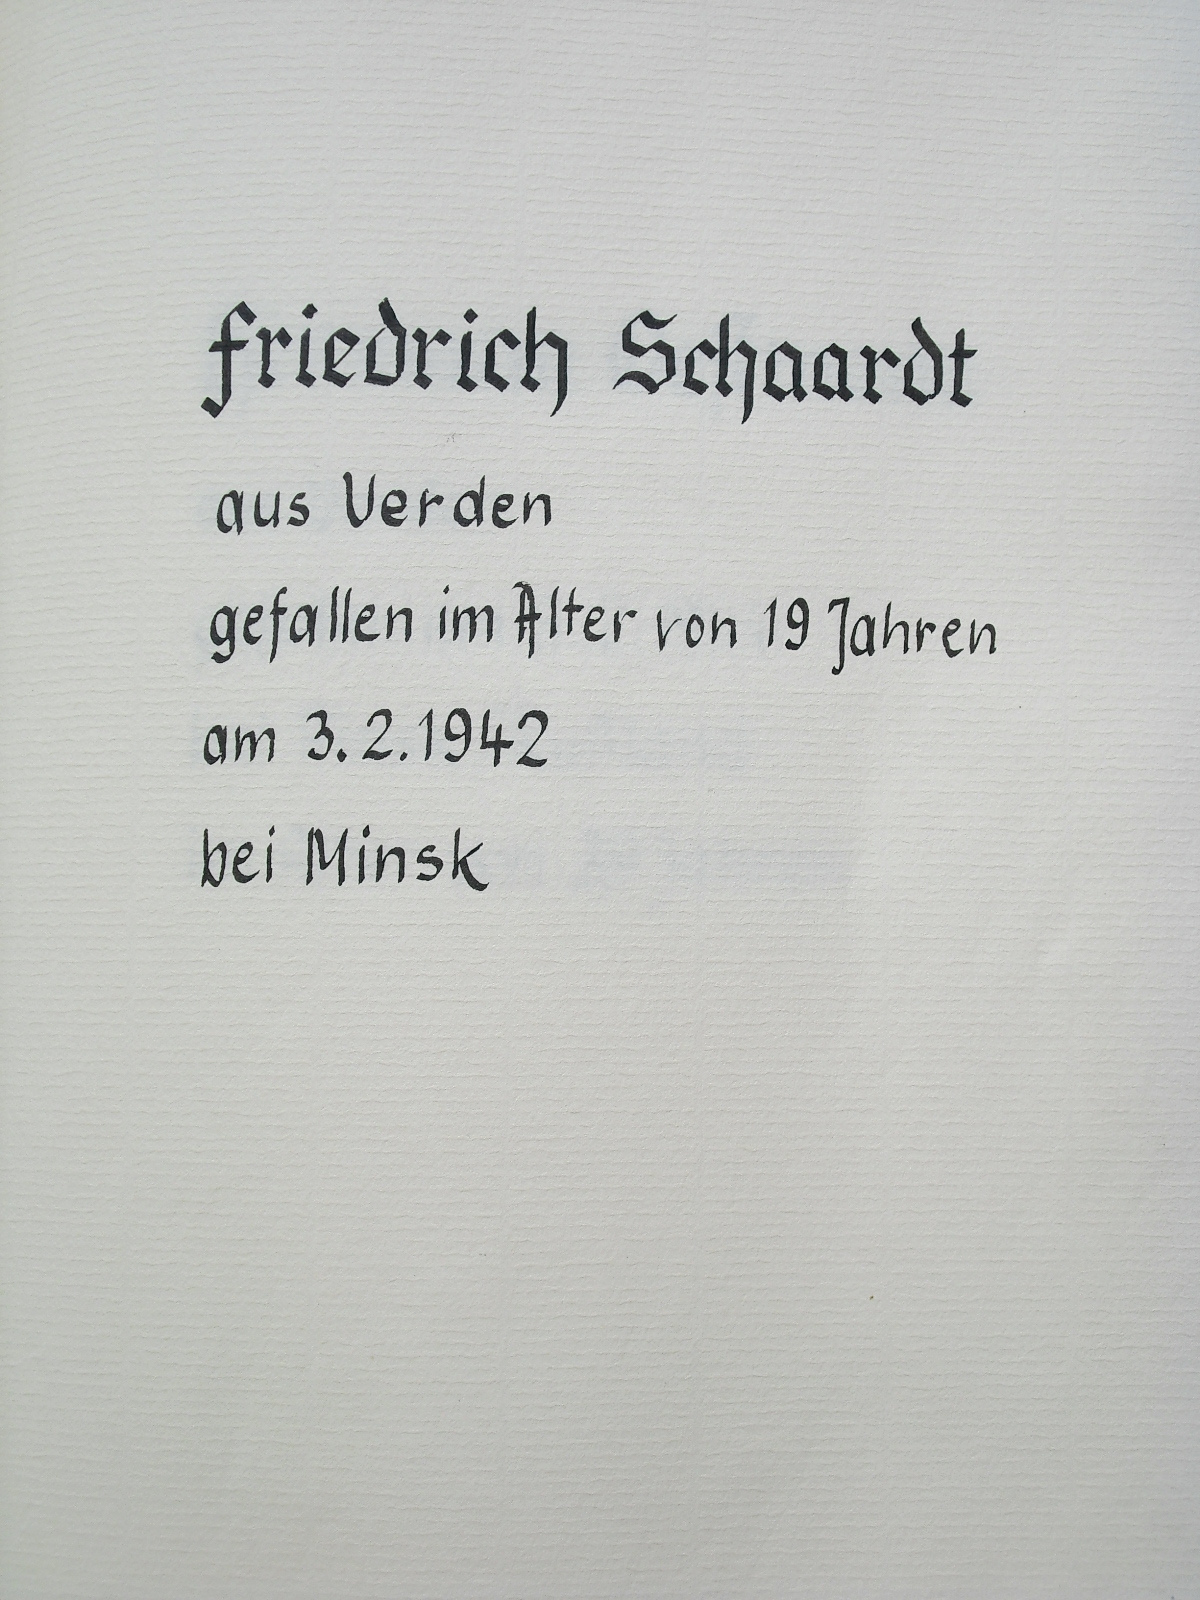 Friedrich Schaardt
aus Verden
gefallen im Alter von 19 Jahren
am 3.2.1942
bei Minsk